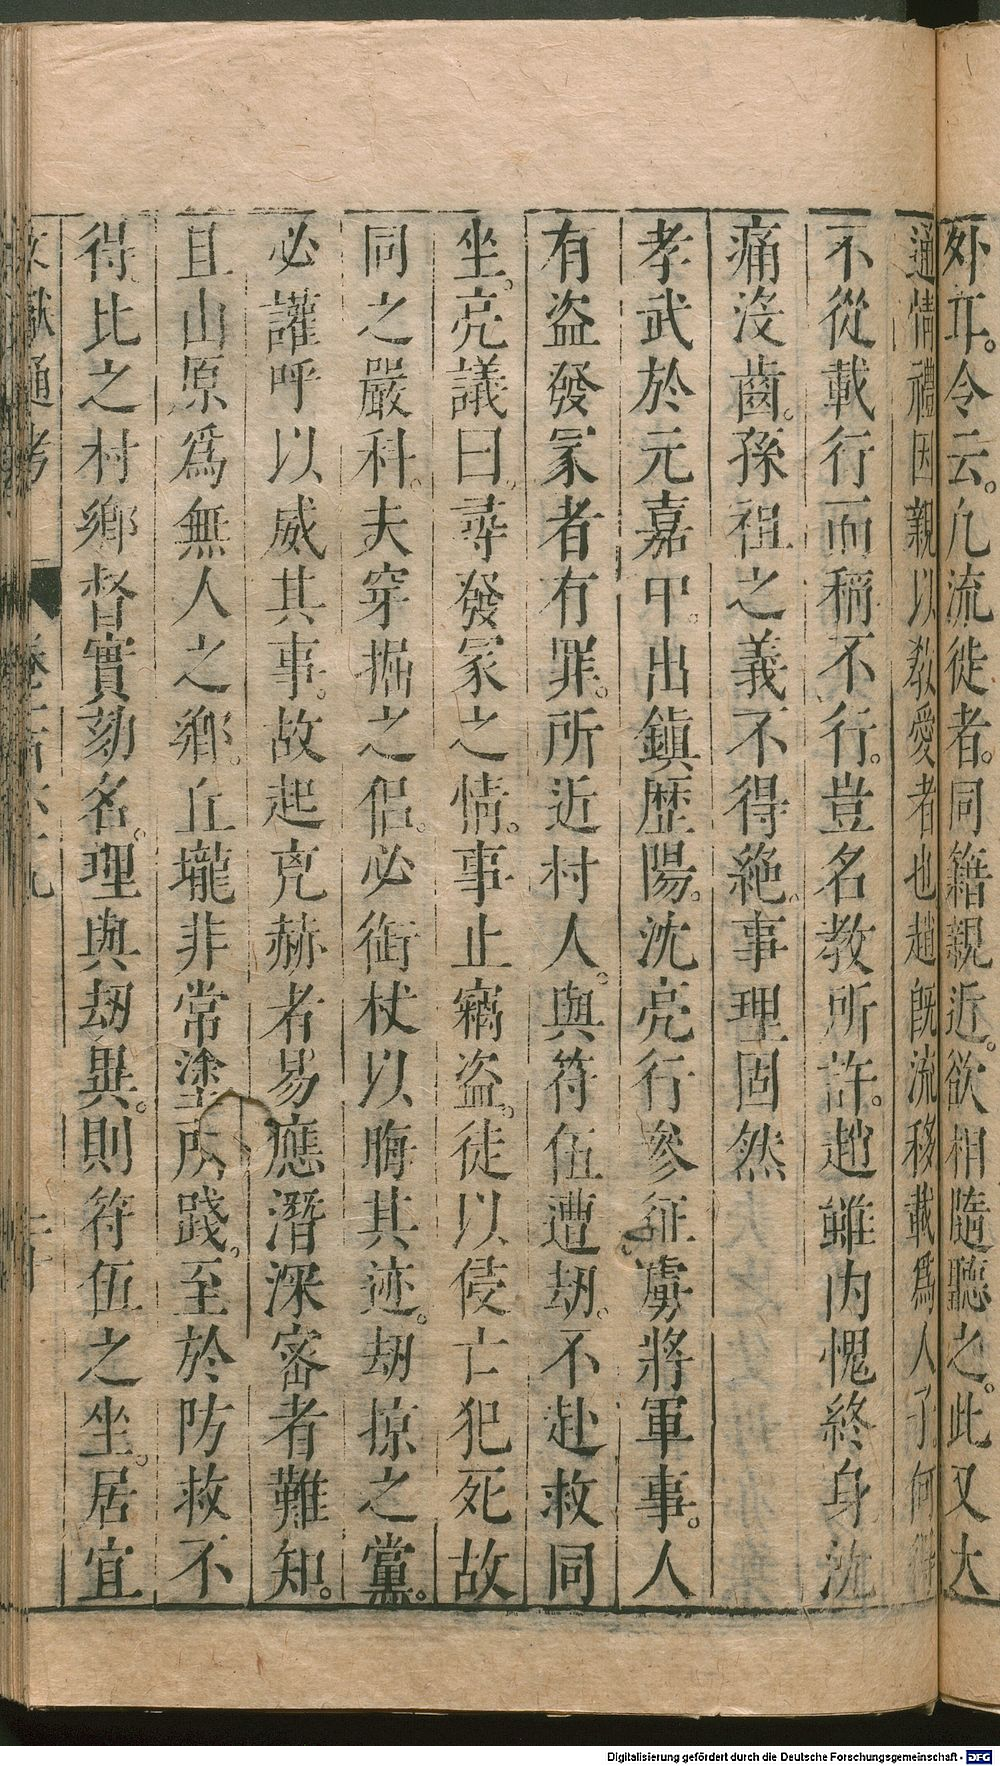 外耳。令云。凡流徙者。同籍親近。欲相隨聽之。此又大
通情禮因親以教愛者也趙既流移載爲人子。何得
不從載行而稱不行。豈名教所許。趙雖内愧終身沈
痛沒齒。孫祖之義不得絶。事理固然
孝武於元嘉中。出鎮歷陽。沈亮行參征虜將軍事。人
有盜發冢者有罪。所近村人。與符伍遭劫。不赴救同
坐。亮議曰。尋發冢之情。事止竊盜。徒以侵亡犯死故
同之嚴科。夫穿掘之侶。必銜杖以晦其迹。劫掠之黨。
必讙呼以威其事。故起兇赫者易應潛深密者難知。
且山原爲無人之鄉。丘壠非常塗所踐。至於防救不
得比之村鄉督實劾名。理與刼異。則符伍之坐。居宜
文獻通考
Digitalisierung gefördert durch die Deutsche Forschungsgemeinschaft - DFG